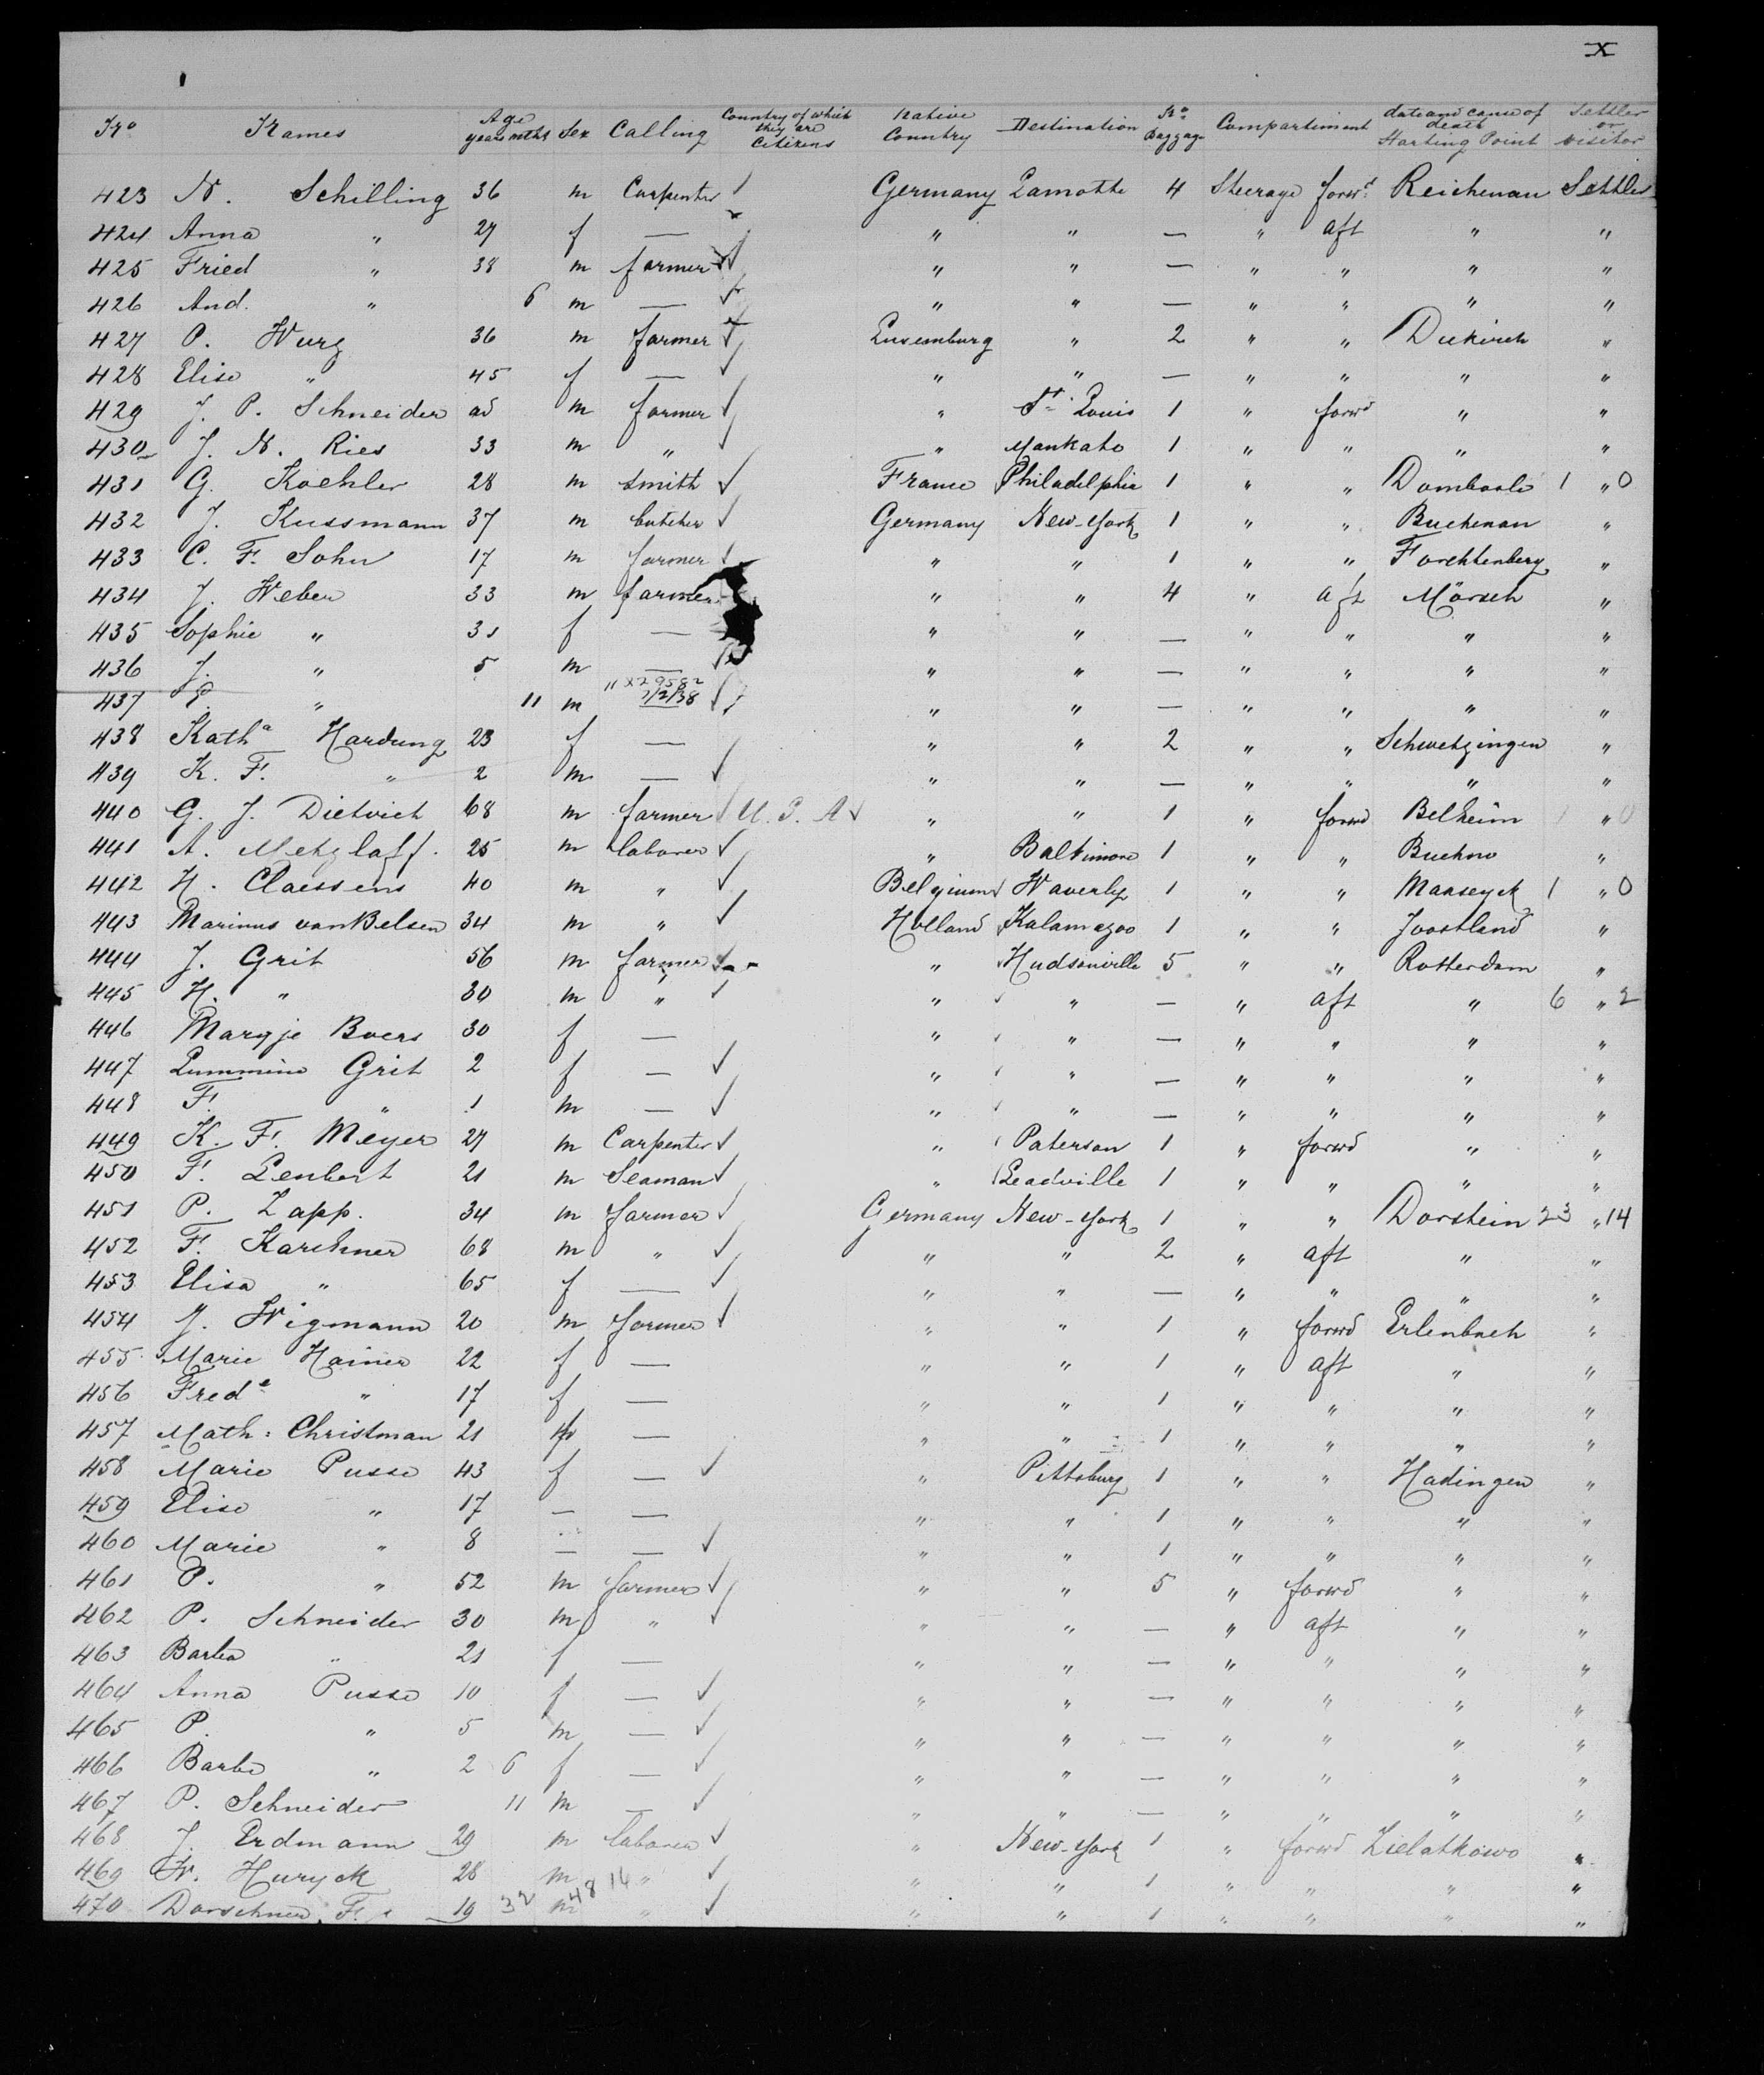 X
No Names Age years mths Sex Calling Country of which they are Citizens Native Country Destination No Baggage Compartiment date and cause of death Starting Point Settler or visitor
423 N. Schilling 36 m Carpenter Germany Lamotte 4 Steerage forwd Reichenau Settler
424 Anna " 27 f — " " — " aft " "
425 Fried " 38 m farmer " " — " " " "
426 And. " 6 m — " " — " " " "
427 P. Wurg 36 m farmer Luxemburg " 2 " " Diekirch "
428 Elise " 45 f — " " — " " " "
429 J. P. Schneider m farmer " St Louis 1 " forwd " "
430 J. N. Ries 33 m " " Mankato 1 " " " "
431 G. Koehler 28 m smith France Philadelphia 1 " " 1 " 0
432 J. Kussmann 37 m butcher Germany New-York 1 " " Buchenau "
433 C. F. Sohn 17 m farmer " " 1 " " Forchtenberg "
434 J. Weber 33 m farmer " " 4 " aft Mörsch "
435 Sophie " 31 f — " " — " " " "
436 J. " 5 m — " " — " " " "
" X29582
437 " 11 m 3/2/38 " " — " " " "
438 Katha Hardung 23 f — " " 2 " " Schwetzingen "
439 K. F. " 2 m — " " — " " " "
440 G. J. Dietrich 68 m farmer U.S.A " " 1 " forwd Belheim 1 " 0
441 A. Metzlaff. 25 m laborer " Baltimore 1 " " "
442 H. Claessens 40 m " Belgium Waverly 1 " " Maaseyck 1 " 0
443 Marinus vanBelsen 34 m " Holland Kalamazoo 1 " " Joostland "
444 J. Grit 56 m farmer " Hudsonville 5 " " Rotterdam "
445 H. " 30 m " " " — " aft " 6 " 2
446 Margje Boers 30 f — " " — " " " "
447 Grit 2 f — " " — " " " "
448 F. " 1 m — " " — " " " "
449 K. F. Meyer 27 m Carpenter " Paterson 1 " forwd " "
450 F. Lenbert 21 m Seaman " Leadville 1 " " " "
451 P. Zapp. 34 m farmer Germany New-York 1 " " Dorstein 23 " 14
452 F. Karchner 68 m " " " 2 " aft " "
453 Elisa " 65 f — " " — " " " "
454 J. Wigmann 20 m farmer " " 1 " forwd Erlenbach "
455 Marie Hainer 22 f — " " 1 " aft " "
456 Frede " 17 f — " " 1 " " " "
457 Math: Christman 21 — " " 1 " " " "
458 Marie Pusse 43 f — " Pittsburg 1 " " Hadingen "
459 Elise " 17 — — " " 1 " " " "
460 Marie " 8 — — " " 1 " " " "
461 P. " 52 m farmer " " 5 " forwd " "
462 P. Schneider 30 m " " " — " aft " "
463 Barba " 21 f — " " — " " " "
464 Anna Pusse 10 f — " " — " " " "
465 P. " 5 m — " " — " " " "
466 Barba " 2 6 f — " " — " " " "
467 P. Schneider 11 m — " " — " " " "
468 J. Erdmann 29 m laborer " New-York 1 " forwd Zielatkowo "
469 W. Huryck 28 m " " " 1 " " " "
470 Dorschner, F. 19 m " " " 1 " " " "
32 48 14